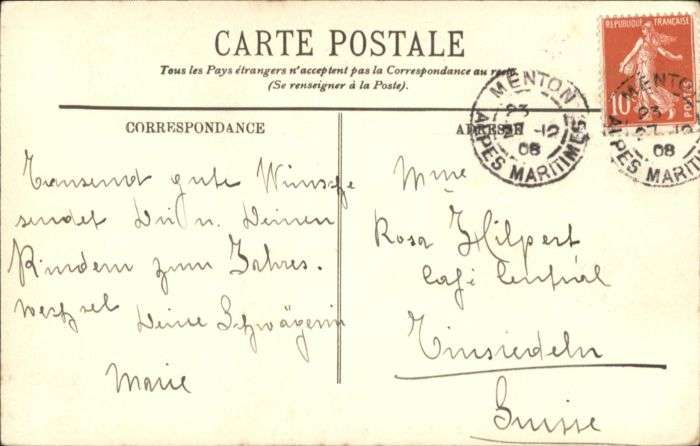 CARTE POSTALE
Tous les Pays étrangers n'acceptent pas la Correspondance au recto
(Se renseigner à la Poste).
CORRESPONDANCE
ADRESSE
REPUBLIQUE FRANÇAISE
10
POSTES
MENTON
23
27 -12
08
ALPES MARITIMES
MENTON
23
27 -12
08
ALPES MARITIMES
Tausend gute Wünsche
sendet Dir u. Deinen
Kindern zum Jahres-
wechsel Deine Schwägerin
Marie
Mme
Rosa Hilpert
Café Central
Einsiedeln
Suisse